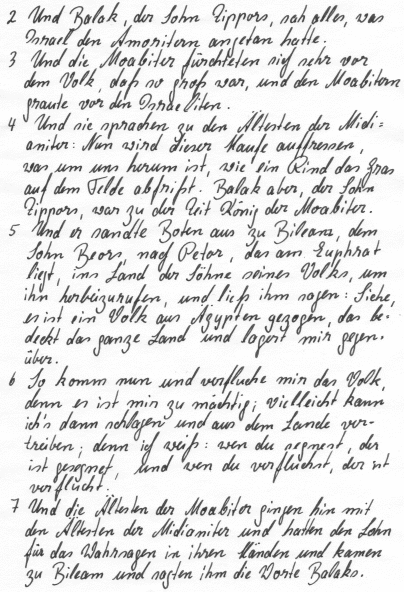 2 Und Balak, der Sohn Zippors, sah alles, was
Israel den Amoritern angetan hatte.
3 Und die Moabiter fürchteten sich sehr vor
dem Volk, daß so groß war, und den Moabitern
graute vor den Israeliten.
4 Und sie sprachen zu den Ältesten der Midi=
aniter: Nun wird dieser Haufe auffressen,
was um uns herum ist, wie ein Rind das Gras
auf dem Felde abfrißt. Balak aber, der Sohn
Zippors, war zu der Zeit König der Moabiter.
5 Und er sandte Boten aus zu Bileam, dem
Sohn Beors, nach Petor, das am Euphrat
liegt, ins Land der Söhne seines Volks, um
ihn herbeizurufen, und ließ ihm sagen: Siehe,
es ist ein Volk aus Ägypten gezogen, das be-
deckt das ganze Land und lagert mir gegen-
über.
6 So komm nun und verfluche mir das Volk,
denn es ist mir zu mächtig; vielleicht kann
ich's dann schlagen und aus dem Lande ver-
treiben; denn ich weiß: wen du segnest, der
ist gesegnet, und wen du verfluchst, der ist
verflucht.
7 Und die Ältesten der Moabiter gingen hin mit
den Ältesten der Midianiter und hatten den Lohn
für das Wahrsagen in ihren Händen und kamen
zu Bileam und sagten ihm die Worte Balaks.